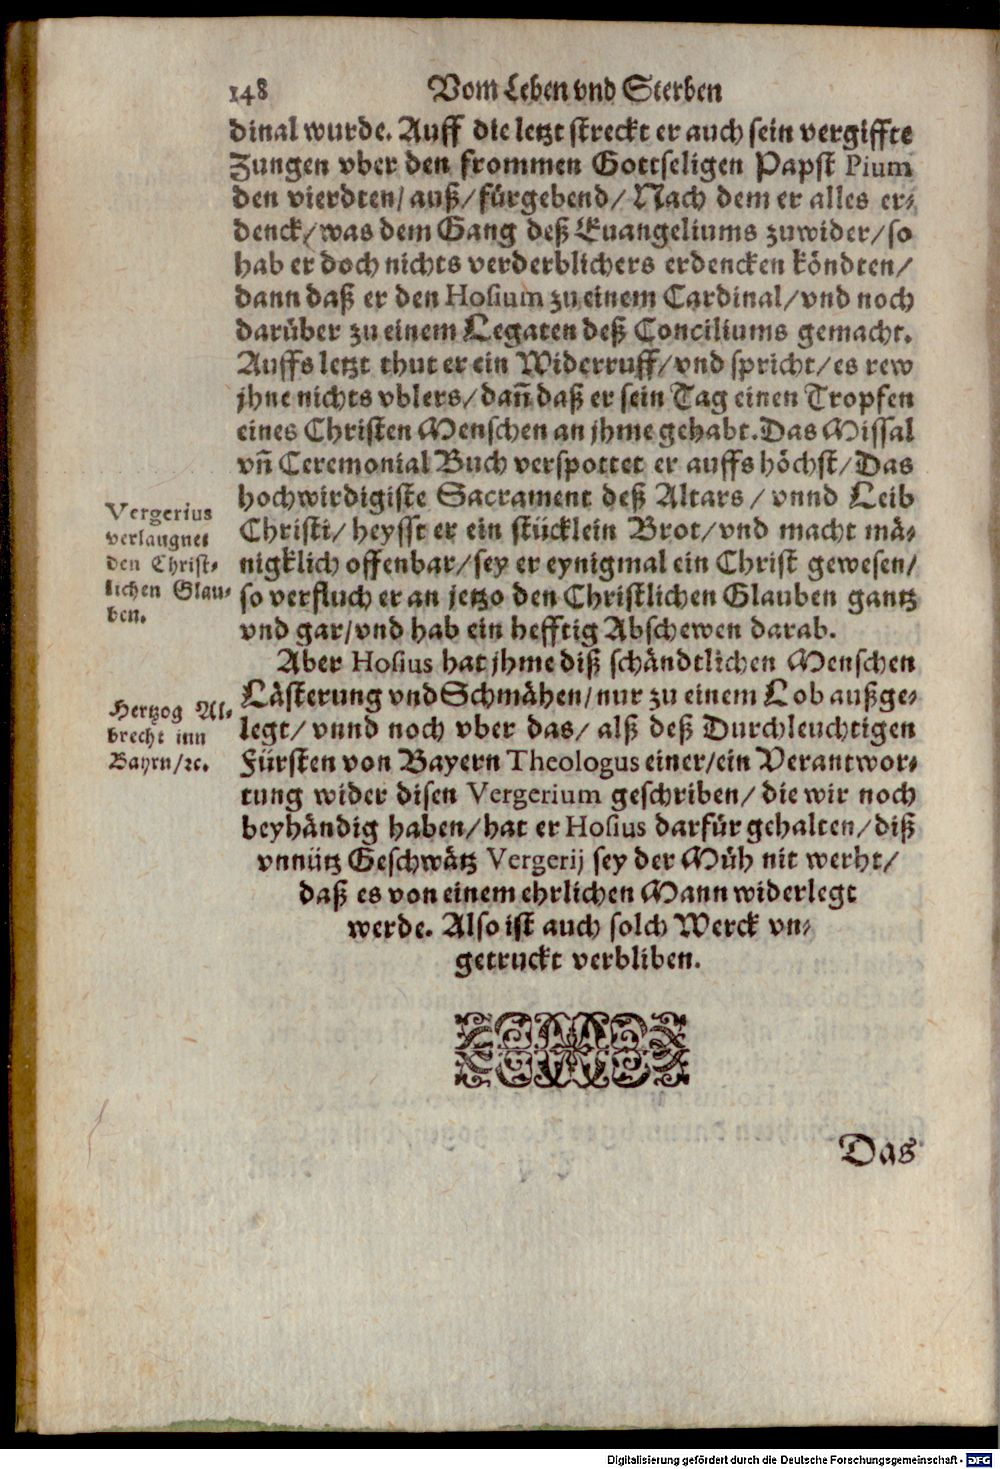 148 Vom Leben vnd Sterben
dinal wurde. Auff die letzt streckt er auch sein vergiffte
Zungen vber den frommen Gottseligen Papst Pium
den vierdten/ auß/ fürgebend/ Nach dem er alles er-
denck/ was dem Gang deß Euangeliums zuwider/ so
hab er doch nichts verderblichers erdencken köndten/
dann daß er den Hosium zu einem Cardinal/ vnd noch
darüber zu einem Legaten deß Conciliums gemacht.
Auffs letzt thut er ein Widerruff/ vnd spricht/ es rew
jhne nichts vblers/ dañ daß er sein Tag einen Tropfen
eines Christen Menschen an jhme gehabt. Das Missal
vñ Ceremonial Buch verspottet er auffs höchst/ Das
hochwirdigiste Sacrament deß Altars/ vnnd Leib
Christi/ heysst er ein stücklein Brot/ vnd macht mä-
nigklich offenbar/ sey er eynigmal ein Christ gewesen/
so verfluch er an jetzo den Christlichen Glauben gantz
vnd gar/ vnd hab ein hefftig Abschewen darab.
Vergerius
verlaugnet
den Christ-
lichen Glau-
ben.
Aber Hosius hat jhme diß schändtlichen Menschen
Lästerung vnd Schmähen/ nur zu einem Lob außge-
legt/ vnnd noch vber das/ alß deß Durchleuchtigen
Fürsten von Bayern Theologus einer/ ein Verantwor-
tung wider disen Vergerium geschriben/ die wir noch
beyhändig haben/ hat er Hosius darfür gehalten/ diß
vnnütz Geschwätz Vergerij sey der Müh nit werht/
daß es von einem ehrlichen Mann widerlegt
werde. Also ist auch solch Werck vn-
getruckt verbliben.
Hertzog Al-
brecht inn
Bayrn/ ꝛc.
Das
Digitalisierung gefördert durch die Deutsche Forschungsgemeinschaft - DFG